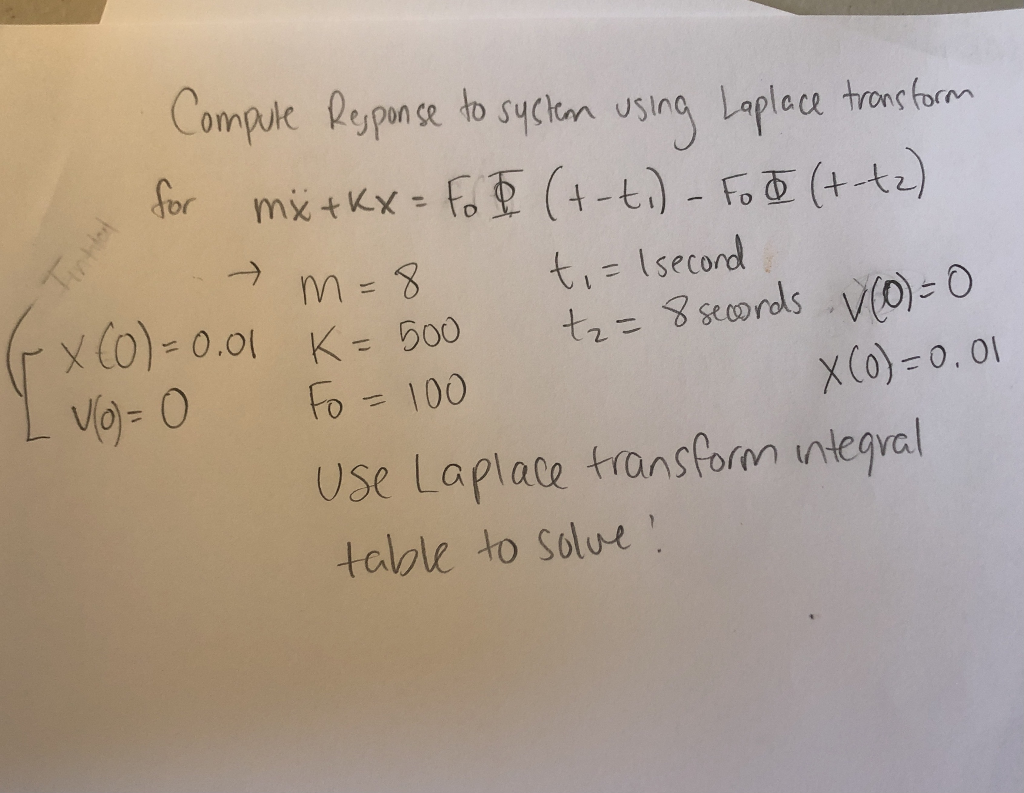 Compute Response to system using Laplace transform
for mẍ + Kx = F₀ Φ (t-t₁) - F₀ Φ (t-t₂)
→ m = 8 t₁ = 1 second
X(0) = 0.01 K = 500 t₂ = 8 seconds V(0) = 0
V(0) = 0 F₀ = 100 X(0) = 0.01
Use Laplace transform integral
table to solve!